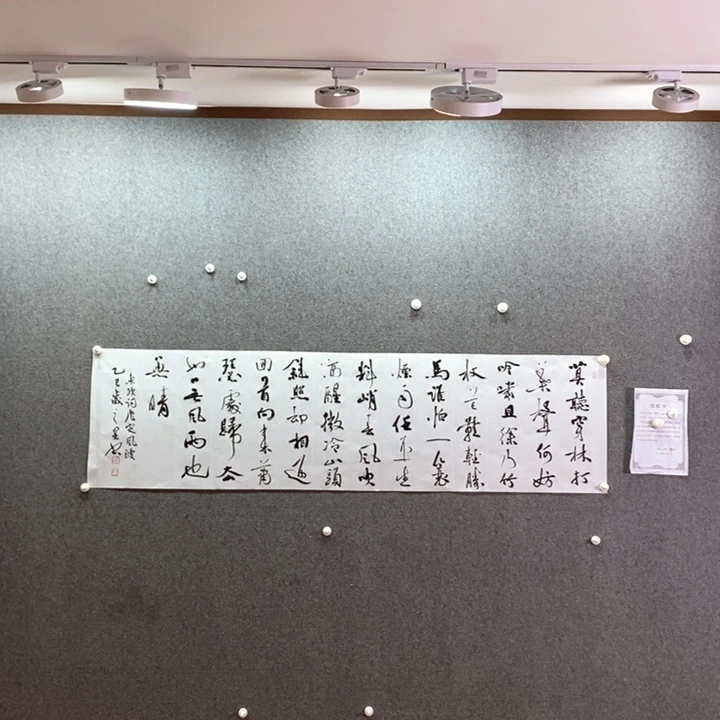 莫聽穿林打
葉聲何妨
吟嘯且徐行竹
杖芒鞋輕勝
馬誰怕一蓑
煙雨任平生
料峭春風吹
酒醒微冷山頭
斜照却相迎
回首向來蕭
瑟處歸去
也無風雨也
無晴
東坡詞定風波
乙巳歲